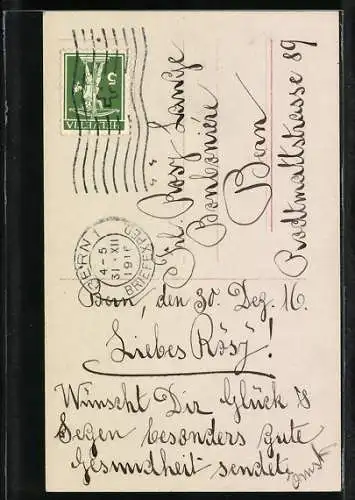 HELVETIA
5
BERN 1
4-5
31.XII
1916
BRIEFEXPED.
Frl. Rösy Lanze
Bonbonière
Bern
Rodtmattstrasse 89
Bern, den 30. Dez. 16.
Liebes Rösy!
Wünscht Dir Glück &
Segen besonders gute
Gesundheit sendet:
Ernst